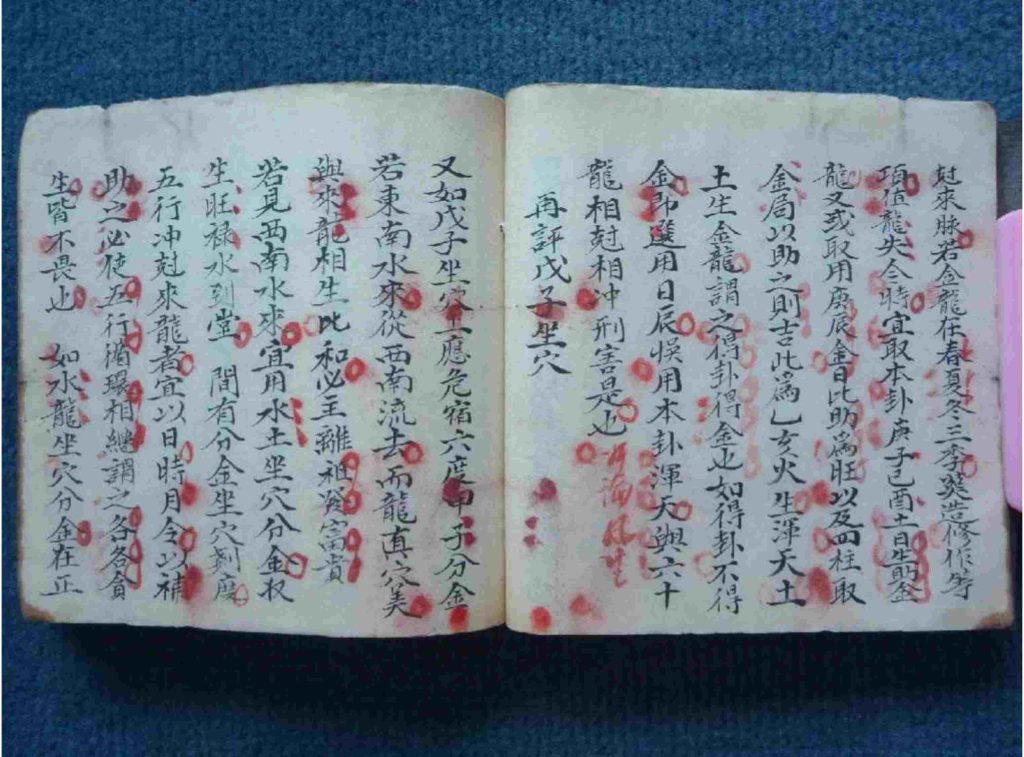 尅來脉若金龍在春夏冬三季葬造修作等
項值龍失令時宜取本卦庚子己酉土日生助金
龍又或取用庚辰金日比助爲旺以及四柱取
金局以助之則吉此爲乙亥火生渾天土
土生金龍謂之得卦得金也如得卦不得
金即選用日辰悮用本卦渾天與六十
龍相尅相冲刑害是也
再評戊子坐穴
又如戊子坐穴上應危宿六度甲子分金
若東南水來從西南流去而龍真穴美
與來龍相生比和必主離祖發富貴
若見西南水來宜用水土坐穴分金收
生旺禄水到堂間有分金坐穴剝度
五行冲尅來龍者宜以日時月令以補
助之必使五行循環相繼謂之各各貪
生皆不畏也 如水龍坐穴分金在正